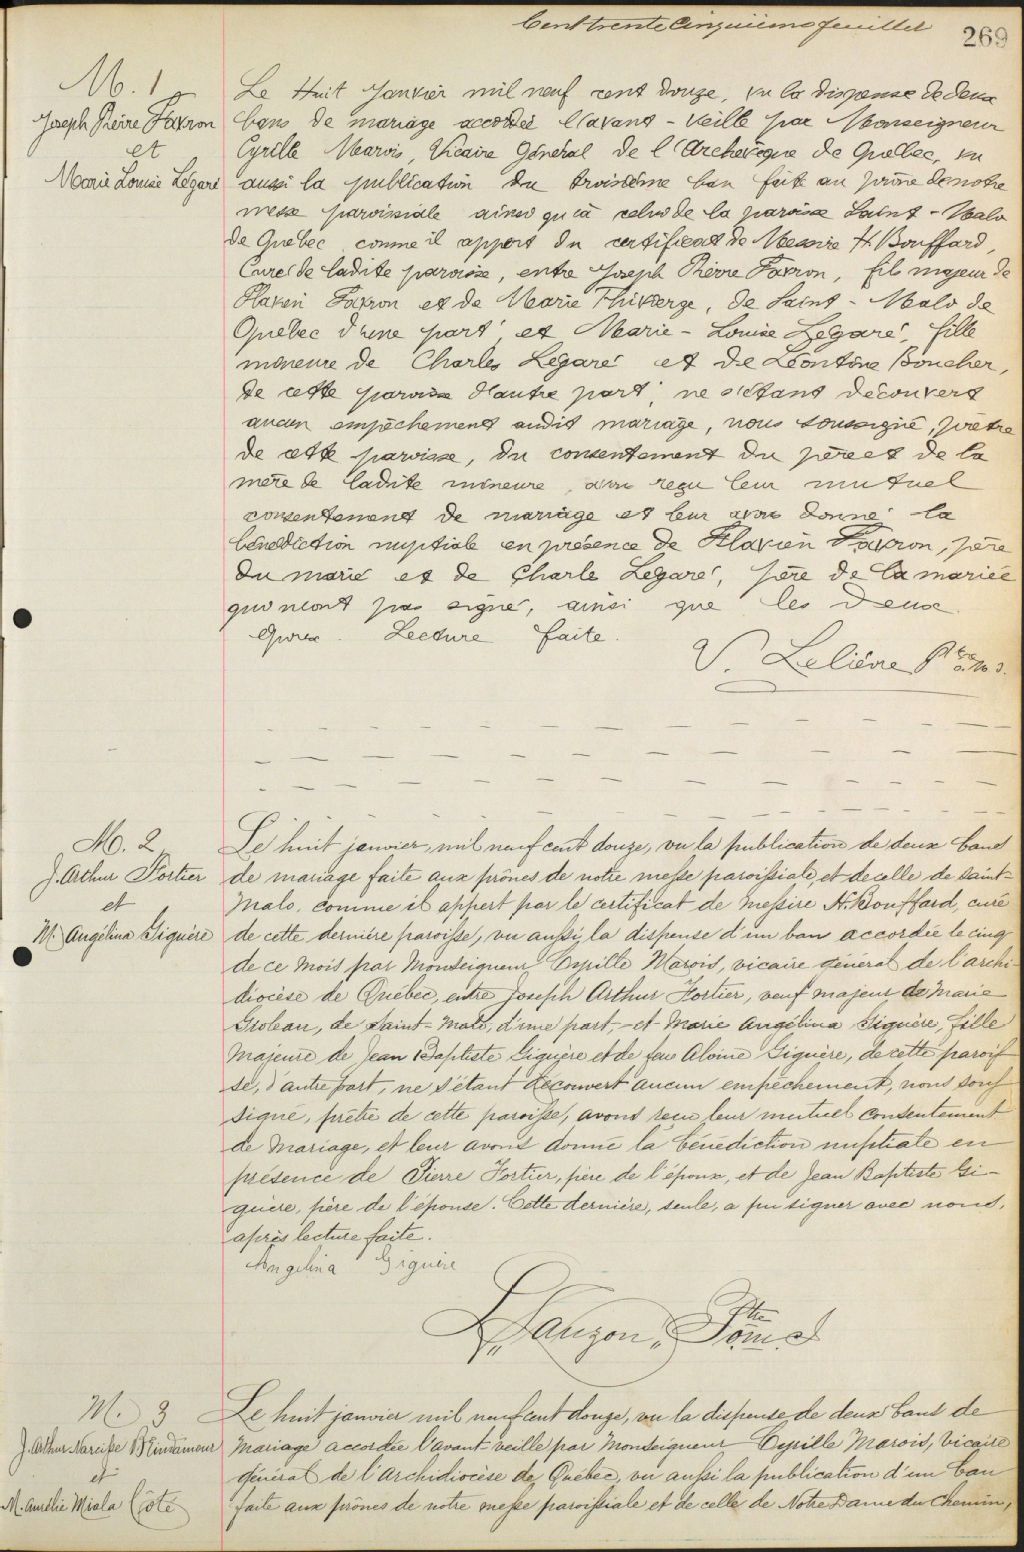 Cent trente cinquième feuillet
269
M. 1
Joseph Pierre Favron
et
Marie Louise Légaré
Le Huit Janvier mil neuf cent douze, vu la dispense de deux
bans de mariage accordée l'avant-veille par Monseigneur
Cyrille Marois, Vicaire Général de l'Archevêque de Québec, vu
aussi la publication du troisième ban faite au prône de notre
messe paroissiale ainsi qu'à celui de la paroisse Saint-Malo
de Québec comme il appert du certificat de Messire H. Bouffard,
Curé de ladite paroisse, entre Joseph Pierre Favron, fils majeur de
Flavien Favron et de Marie Thivierge, de Saint-Malo de
Québec d'une part, et Marie-Louise Légaré, fille
mineure de Charles Légaré et de Léontine Boucher,
de cette paroisse d'autre part; ne s'étant découvert
aucun empêchement audit mariage, nous soussigné, prêtre
de cette paroisse, du consentement du père et de la
mère de ladite mineure, avons reçu leur mutuel
consentement de mariage et leur avons donné la
bénédiction nuptiale en présence de Flavien Favron, père
du marié et de Charle Légaré, père de la mariée
qui n'ont pas signé, ainsi que les deux
époux. Lecture faite.
V. Lelièvre Ptre o.m.i.
M. 2
J. Arthur Fortier
et
M. Angélina Giguère
Le huit janvier, mil neuf cent douze, vu la publication de deux bans
de mariage faite aux prônes de notre messe paroissiale, et de celle de Saint-
Malo, comme il appert par le certificat de messire H. Bouffard, curé
de cette dernière paroisse, vu aussi la dispense d'un ban accordée le cinq
de ce mois par Monseigneur Cyrille Marois, vicaire général de l'archi-
diocèse de Québec, entre Joseph Arthur Fortier, veuf majeur de Marie
Groleau, de Saint-Malo, d'une part, et Marie Angélina Giguère, fille
majeure de Jean Baptiste Giguère et de feu Giguère, de cette parois
se, d'autre part, ne s'étant découvert aucun empêchement, nous sous
signé, prêtre de cette paroisse, avons reçu leur mutuel consentement
de mariage, et leur avons donné la bénédiction nuptiale en
présence de Pierre Fortier, père de l'époux, et de Jean Baptiste Gi-
guère, père de l'épouse. Cette dernière, seule, a pu signer avec nous,
après lecture faite.
Angelina Giguère
L. Lauzon, Ptre o.m.i.
M. 3
J. Arthur Narcisse Blindamour
et
M. Aurélie Miala Côté
Le huit janvier mil neuf cent douze, vu la dispense de deux bans de
mariage accordée l'avant-veille par Monseigneur Cyrille Marois, vicaire
général de l'archidiocèse de Québec, vu aussi la publication d'un ban
faite aux prônes de notre messe paroissiale et de celle de Notre Dame du Chemin,